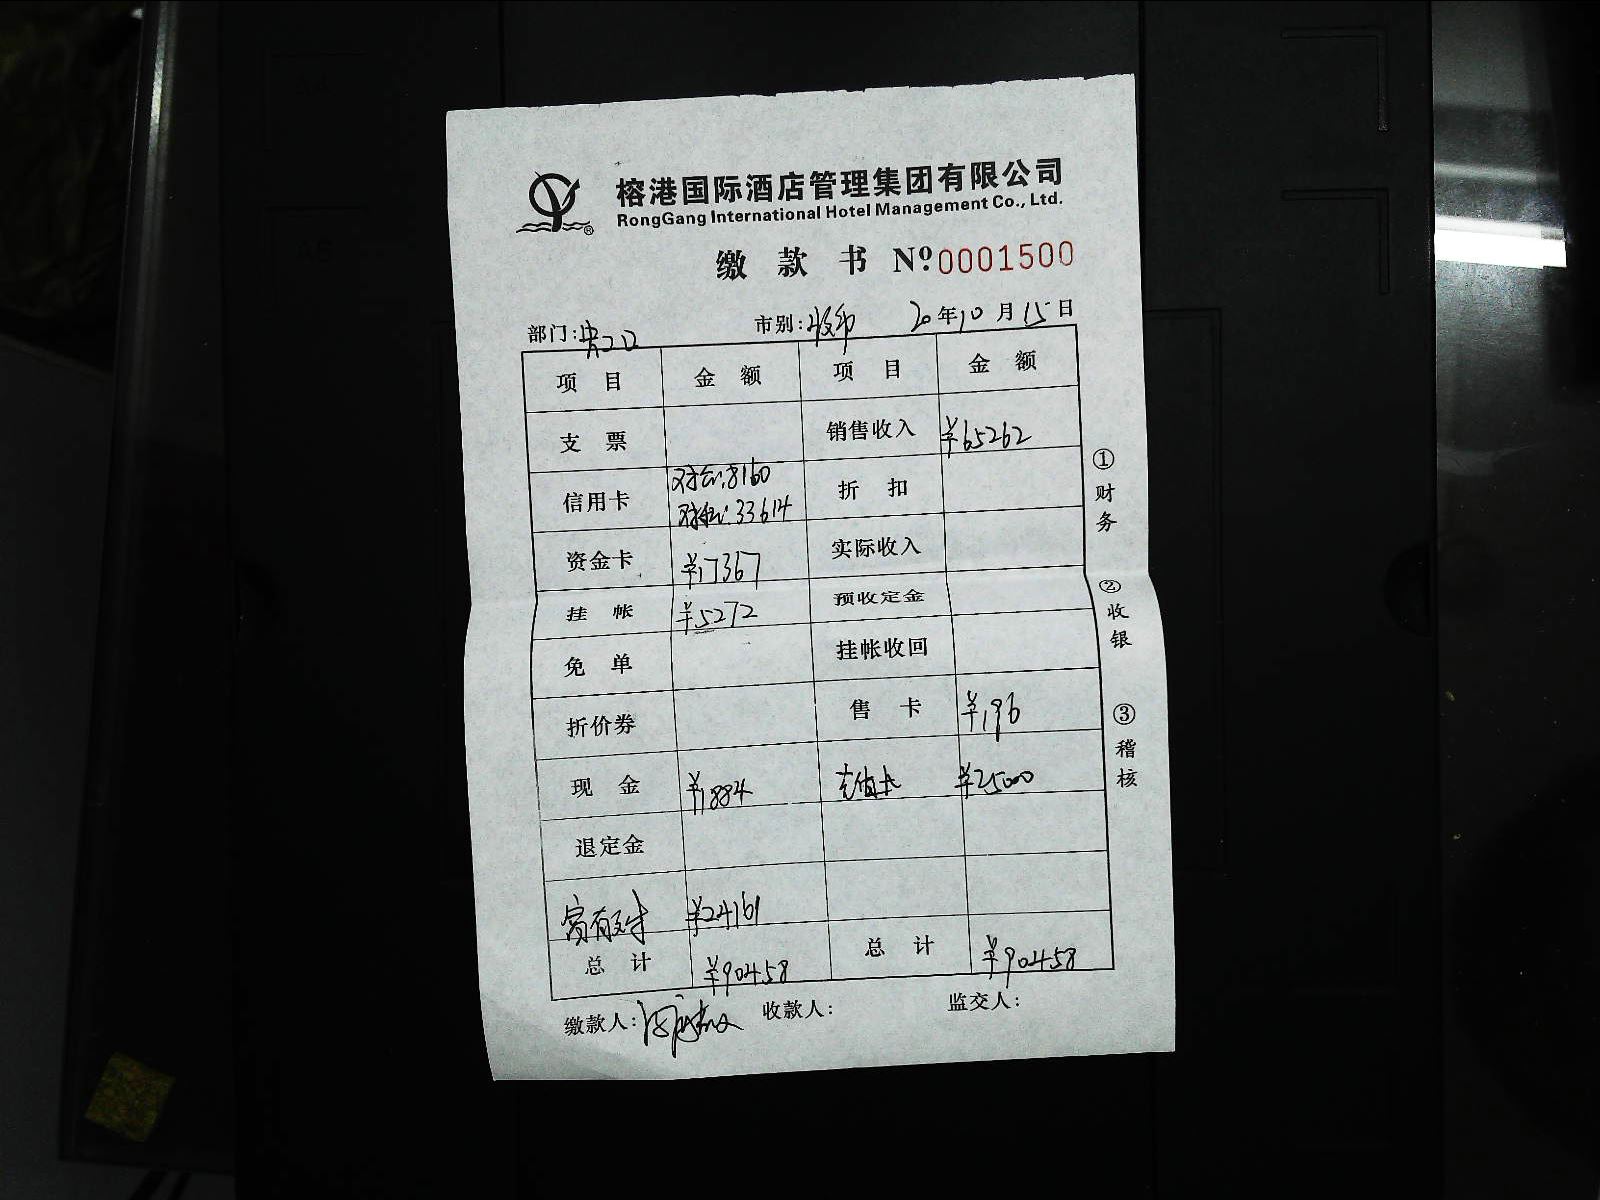 榕港国际酒店管理集团有限公司
RongGang International Hotel Management Co., Ltd.
缴款书 Nº 0001500
部门: 市别: 20年10月15日
项目 金额 项目 金额
支票 销售收入 ¥65262
信用卡 对公:8160
33614 折扣
资金卡 ¥17367 实际收入
挂帐 ¥5272 预收定金
免单 挂帐收回
折价券 售卡 ¥196
现金 ¥1884 充值卡 ¥25000
退定金
富有支付 ¥24161
总计 ¥90458 总计 ¥90458
缴款人: 收款人: 监交人:
①财务
②收银
③稽核